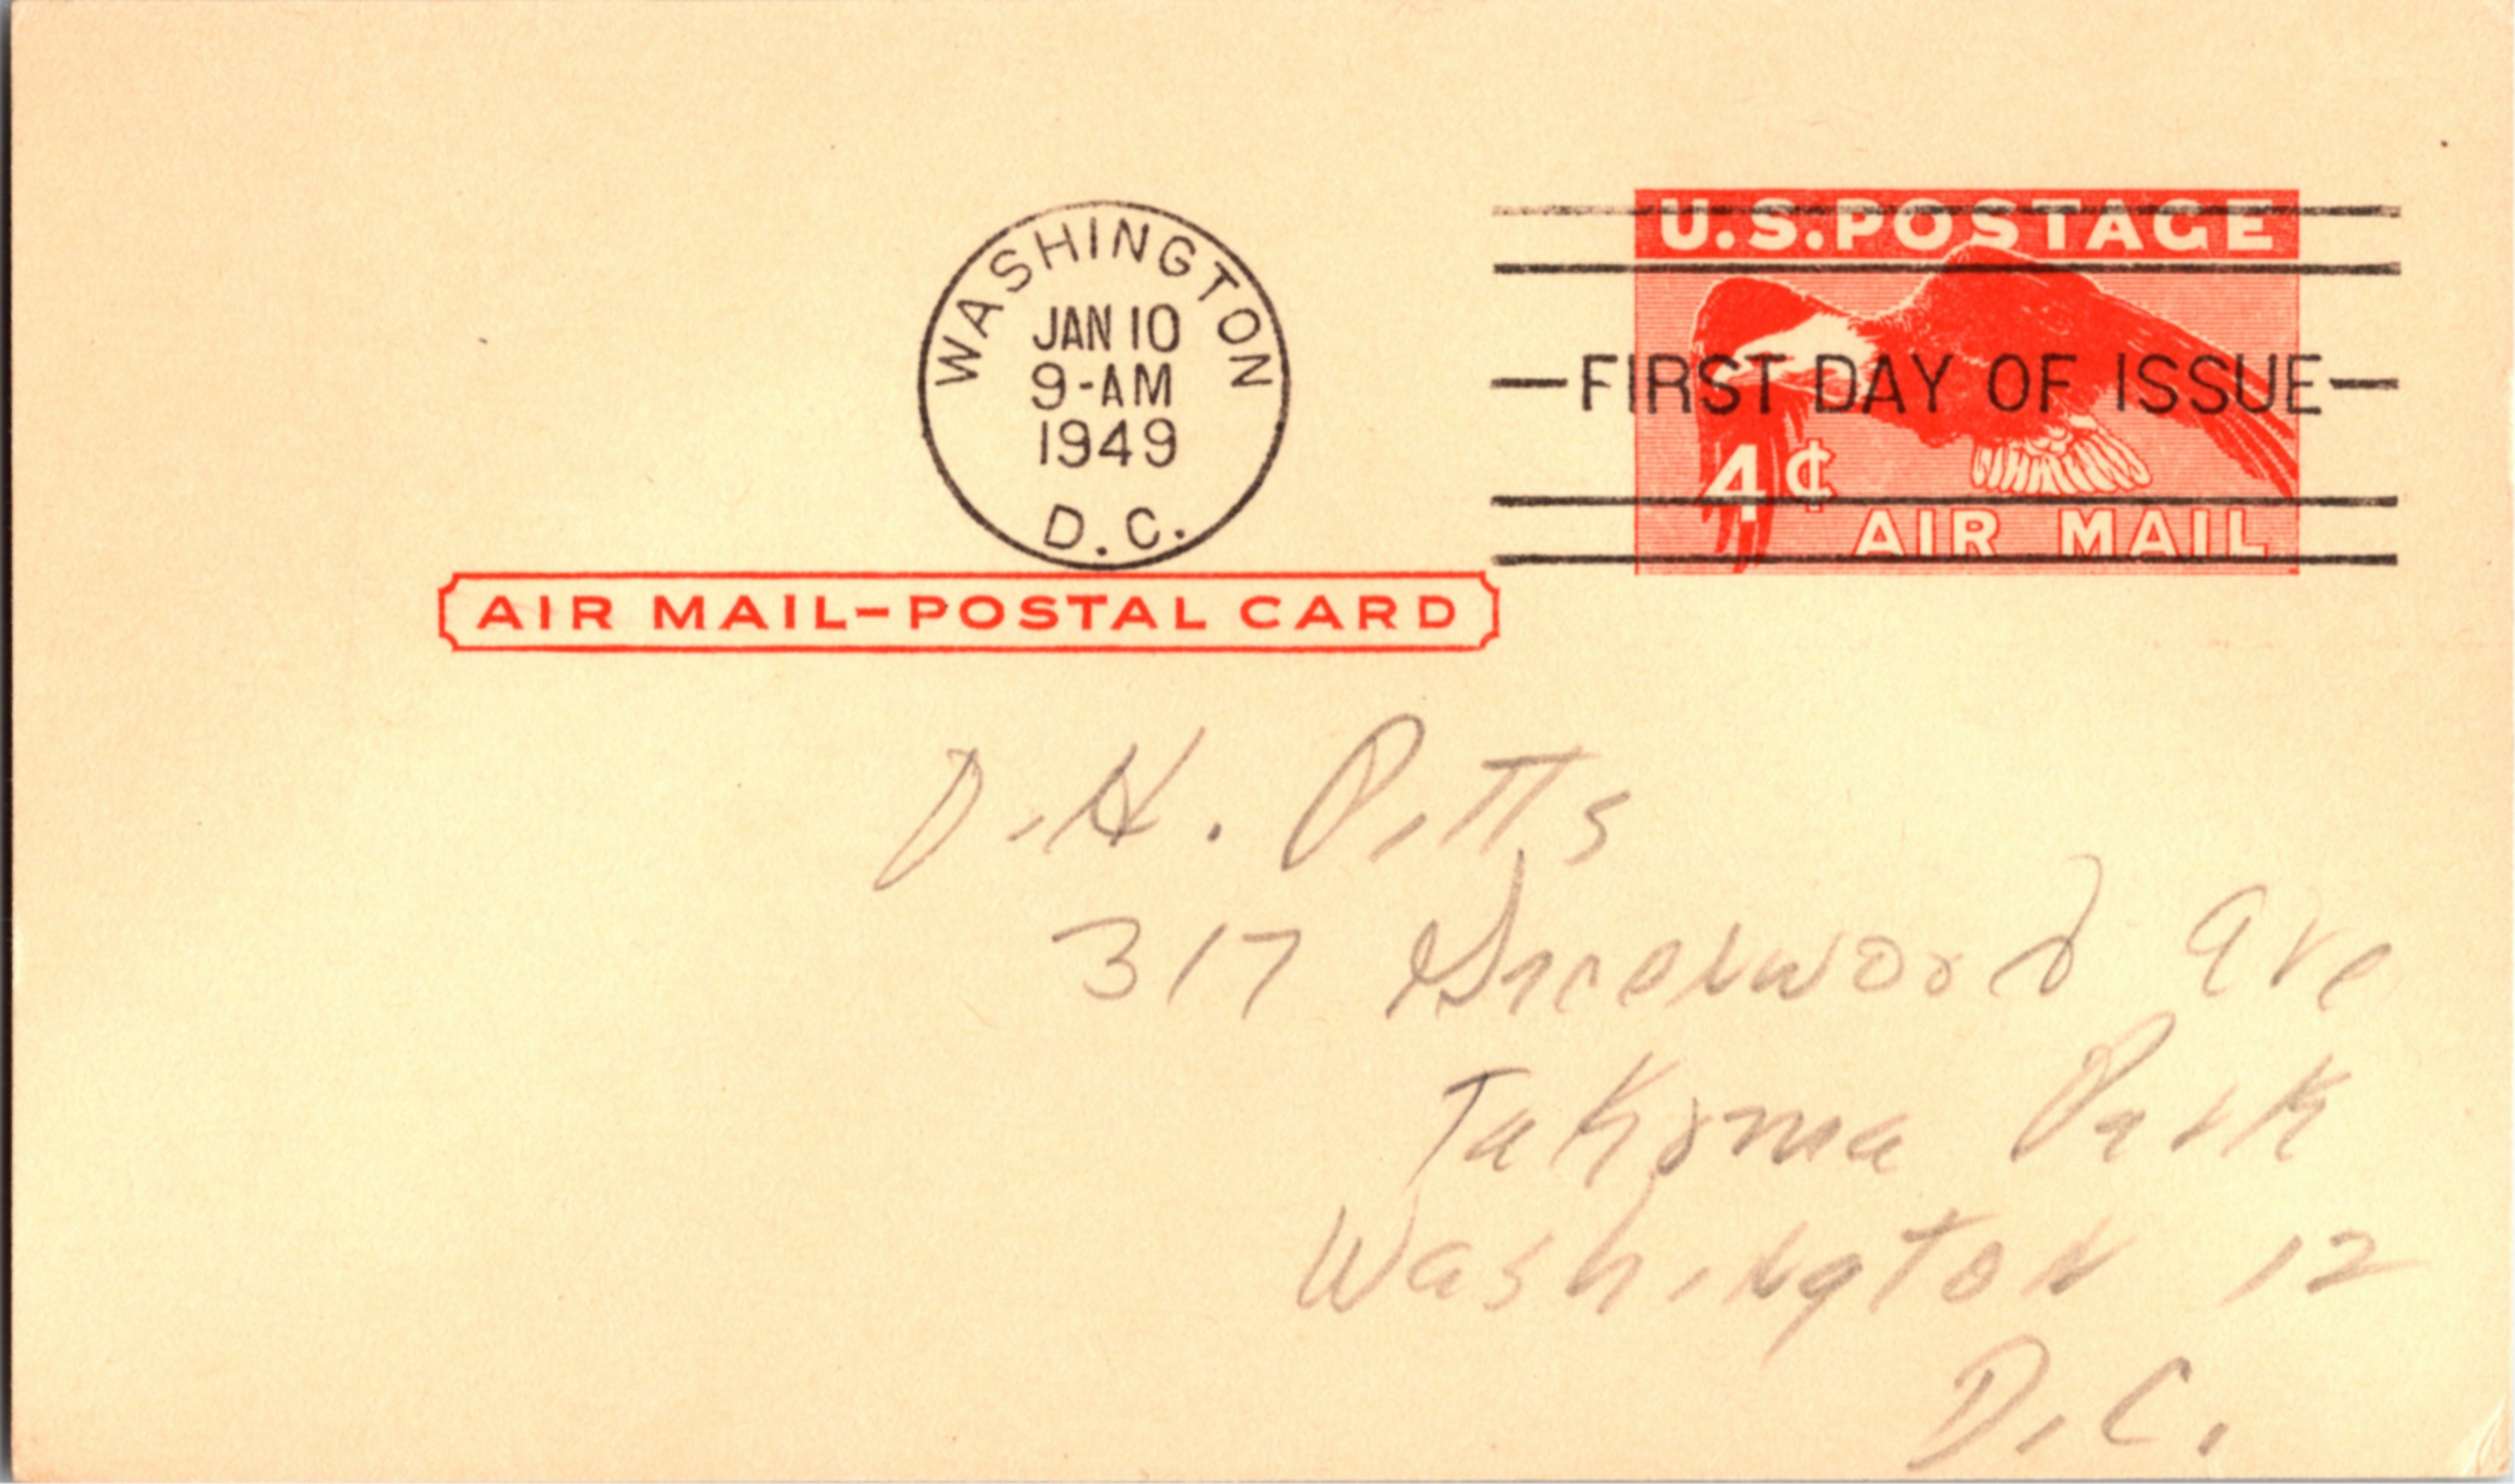 WASHINGTON
JAN 10
9-AM
1949
D.C.
U.S.POSTAGE
—FIRST DAY OF ISSUE—
4¢
AIR MAIL
AIR MAIL–POSTAL CARD
D.H. Pitts
317 Greenwood Ave
Takoma Park
Washington 12
D.C.